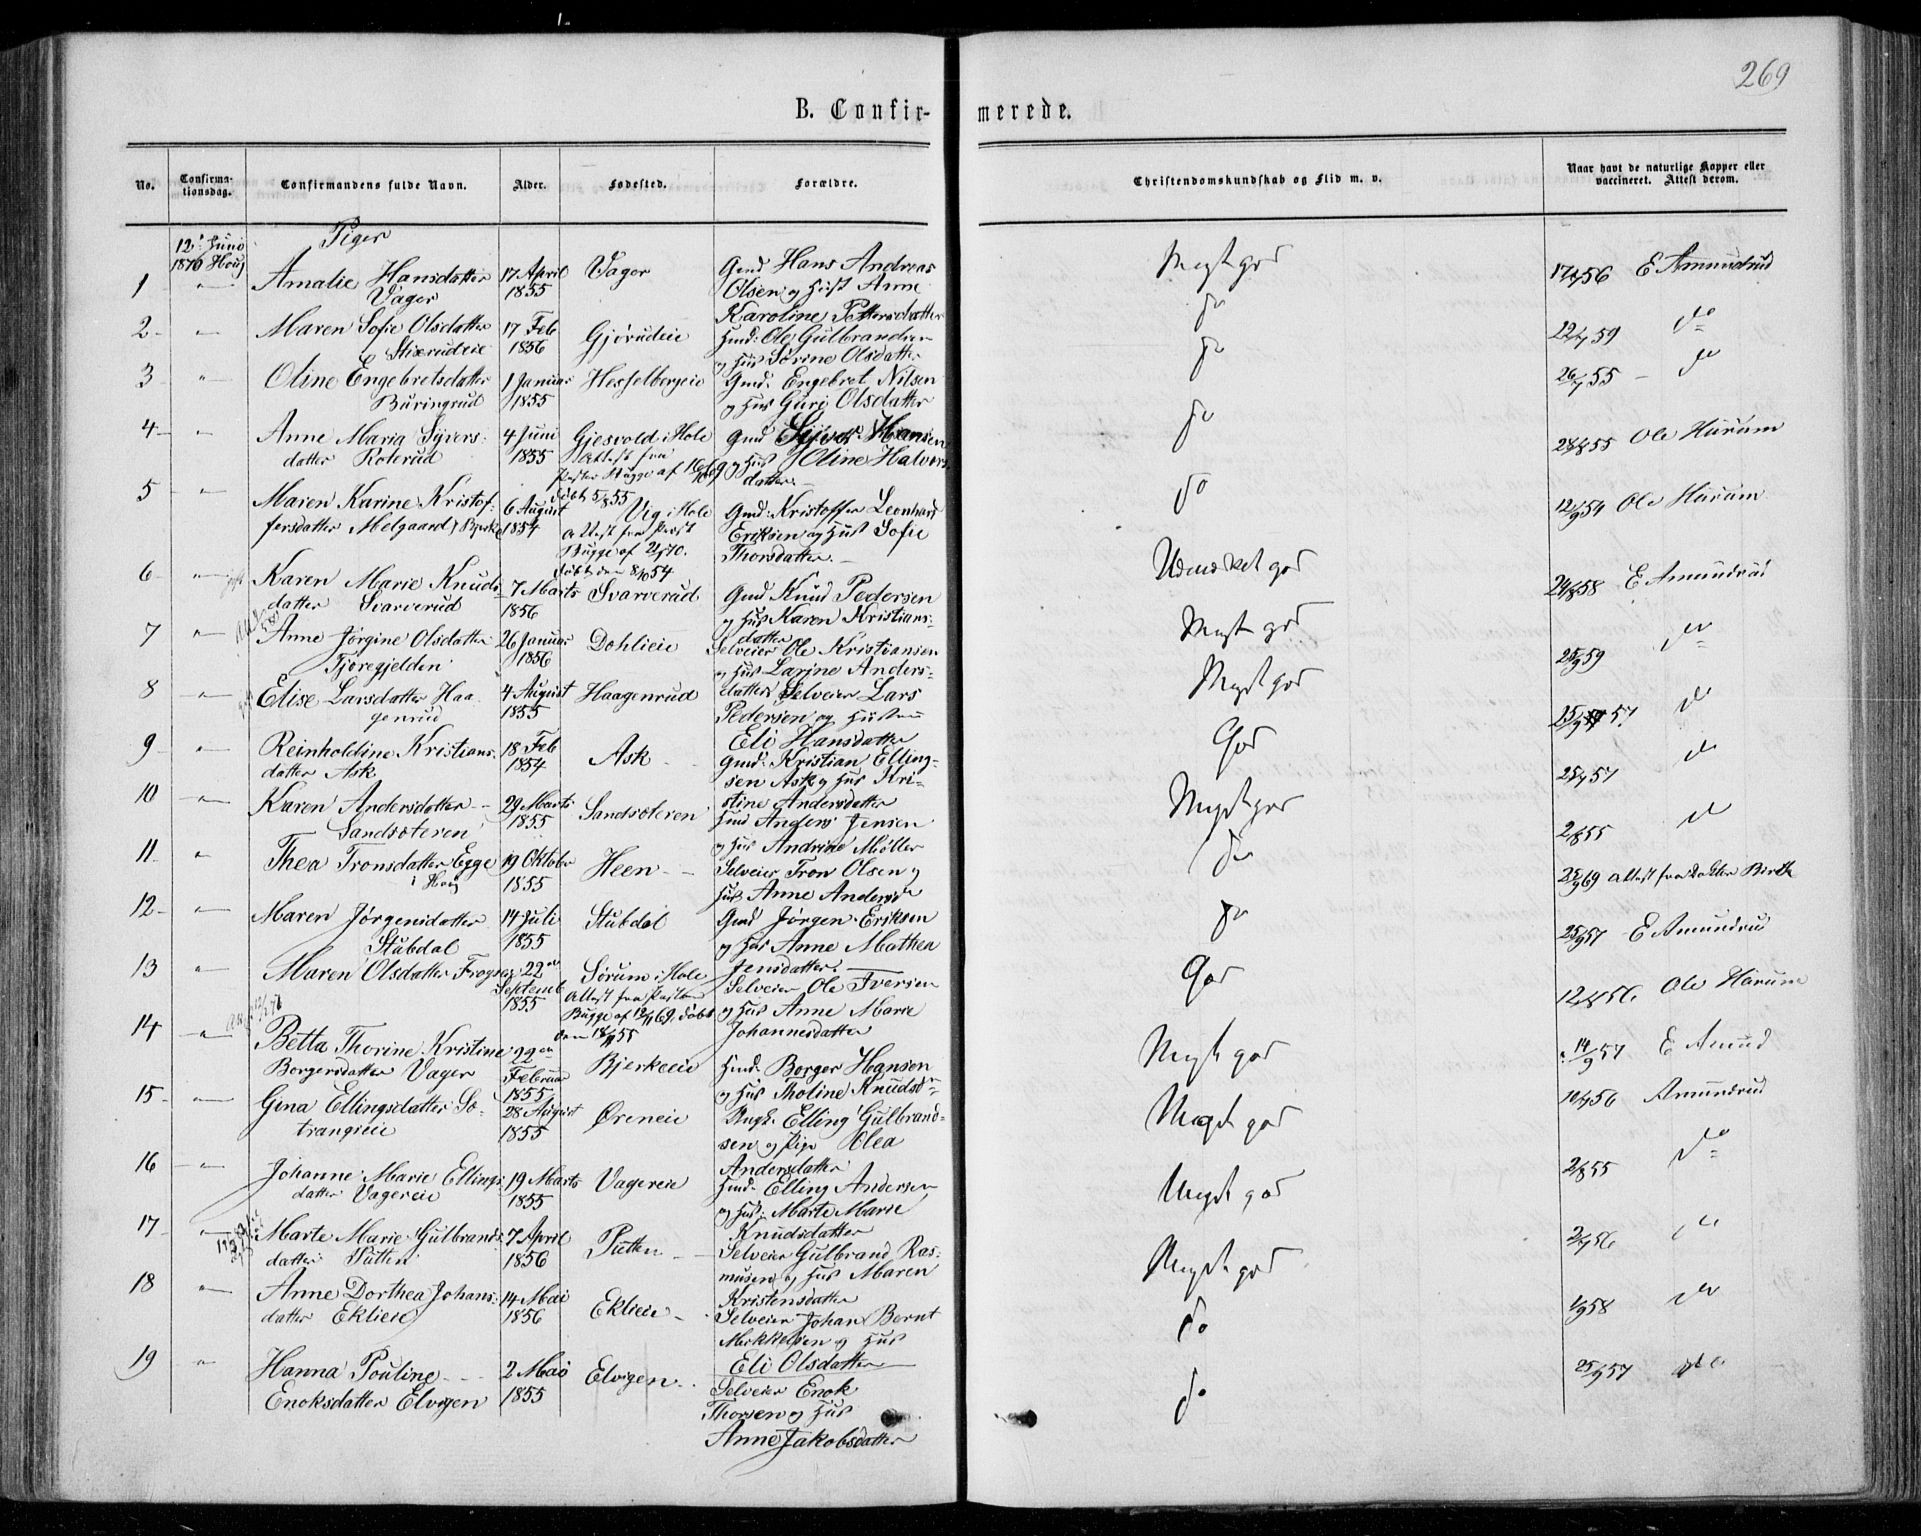 269
B. Confirmerede.
No. Confirmationsdag. Confirmandens fulde Navn. Alder. Fødested. Forældre. Christendomskundskab og Flid m. v. Naar havt de naturlige Kopper eller vaccineret. Attest derom.
12' Juni 1870 Houg Piger
1 " Amalie Hansdatter Vager 17 April 1855 Vager Gmd Hans Andreas Olsen og Hust Anne Karoline Pettersdatter Meget god 17/7 56 E Amundrud
2 - " Maren Sofie Olsdatter Stixrudeie 17 Feb 1856 Gjørudeie Hmd: Ole Gulbrandsen og Hus Sørine Olsdatter do 22/7 59 do
3 " Oline Engebretsdatter Buringrud 1 Januar 1855 Hesselbergeie Gmd. Engebret Nilsen og Hus Guri Olsdatter do 26/7 55 - do
4 - " Anne Maria Syversdatter Roterud 4 Juni 1855 Gjesvold i Hole Attest fra Pastor Bugge af døbt 5/8 55 Gmd Syver Hansen og Hus Oline Halvorsdatter. do 28/8 55 Ole Hurum
5 - " Maren Karine Kristoffersdatter Melgaard / Bjerke 6 August 1854 Vig i Hole Attest fra Prest Bugge af døbt den 8/10 54 Gmd: Kristoffer Leonhard Eriksen og Hust Sofie Thorsdatter. do 12/9 54 Ole Hurum
6 " Karen Marie Knudsdatter Svarverud 7 Marts 1856 Svarverud Gmd Knud Pedersen og Hus Karen Kristiansdatter Udmerket god 24/8 58 E Amundrud
7 " Anne Jørgine Olsdatter Tjoregjelden 26 Januar 1856 Dohlieie Selveier Ole Kristiansen og Hus Larine Andersdatter Meget god 25/9 59 do
8 " Elise Larsdatter Haagenrud 4 August 1855 Haagenrud Selveier Lars Pedersen og Hustru Eli Hansdatter Meget god 25/9 57 do
9 " Reinholdine Kristiansdatter Ask 18 Feb 1854 Ask Gmd. Kristian Ellingsen Ask og Hus Kristine Andersdatter God 25/7 57 do
10 " Karen Andersdatter Sandsæteren 29 Marts 1855 Sandsæteren Hmd Anders Jensen og Hus Andrine Møller Meget god 2/8 55 do
11 " Thea Tronsdatter Egge i Houg 19 Oktober 1855 Heen Selveier Tron Olsen og Hus Anne Andersd do 25/9 69 Attest fra Dokter Birth
12 - " Maren Jørgensdatter Stubdal 14 Juli 1855 Stubdal Gmd Jørgen Eriksen og Hus Anne Mathea Jensdatter. do 25/9 57 E Amundrud
13 " Maren Olsdatter Frogner 22 Septemb 1855 Sørum i Hole Attest fra Pastor Bugge af 12/11 69. døbt den 18/11 55 Selveier Ole Iversen og Hus Anne Marie Johannesdatter God 12/8 56 Ole Hurum
14 " Betta Thorine Kristine Borgersdatter Vager 22 Februar 1855 Bjerkeeie Hmd. Borger Hansen og Hus Tholine Knudsd Meget god 14/9 57 E Amud
15 - " Gina Ellingsdatter Sotrangseie 28 August 1855 Øreneie Ungk. Elling Gulbrandsen og Pige Olea Andersdatter Meget god 10/7 56 Amundrud
16 " Johanne Marie Ellingsdatter Vagereie 19 Marts 1855 Vagereie Hmd. Elling Andersen og Hus: Marte Marie Knudsdatter Meget god 2/8 55 do
17 " Marte Marie Gulbrandsdatter Putten 7 April 1856 Putten Selveier Gulbrand Rasmusen og Hus Maren Kristensdatter Meget god 2/7 56 do
18 " Anne Dorthea Johansdatter Eklieie 14 Mai 1856 Eklieie Selveier Johan Bernt Mikkelsen og Hus Eli Olsdatter do 1/9 58 do
19 " Hanna Pouline Enoksdatter Elvigen 2 Mai 1855 Elvigen Selveier Enok Thorsen og Hus Anne Jakobsdatter do 25/9 57 do